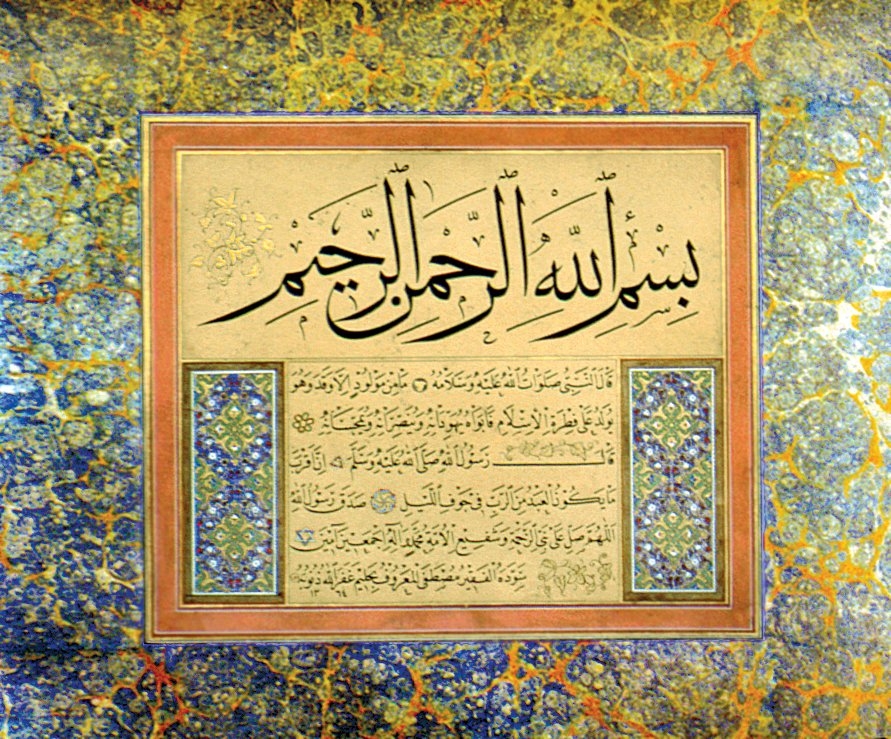 بِسْمِ اللهِ الرَّحْمٰنِ الرَّحِيمِ
قَالَ النَّبِيُّ صَلَوَاتُ اللهِ عَلَيْهِ وَسَلَامُهُ مَا مِنْ مَوْلُودٍ اِلَّا وَقَدْ وَهُوَ
يُولَدُ عَلَى فِطْرَةِ الْاِسْلَامِ فَاَبَوَاهُ يُهَوِّدَانِهِ وَيُنَصِّرَانِهِ وَيُمَجِّسَانِهِ
قَالَ رَسُولُ اللهِ صَلَّى اللهُ عَلَيْهِ وَسَلَّمَ اِنَّ اَقْرَبَ
مَا يَكُونُ الْعَبْدُ مِنَ الرَّبِّ فِي جَوْفِ اللَّيْلِ صَدَقَ رَسُولُ اللهِ
اَللّٰهُمَّ صَلِّ عَلَى نَبِيِّ الرَّحْمَةِ وَشَفِيعِ الْاُمَّةِ مُحَمَّدٍ وَآلِهِ اَجْمَعِينَ آمِينَ
سَوَّدَهُ الْفَقِيرُ مُصْطَفَى الْمَعْرُوفُ بِحَلِيمٍ غَفَرَ اللهُ ذُنُوبَهُ